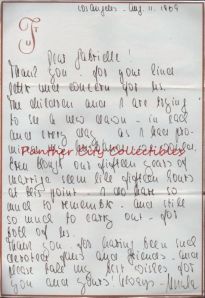 Los Angeles - Aug. 11. 1959
Dear Gabrielle!
Thank you - for your kind
letter and concern for us.
The children and I are trying
to see a new reason - in each
and every day - as I have pro-
Panther City Collectibles
Even though our fifteen years of
marriage seem like fifteen hours
at this point - I do have so
much to remember - and still
so much to carry out - for
both of us.
Thank you - for having been such
devoted fans and friends - and
please take my best wishes for
you and yours! Always -